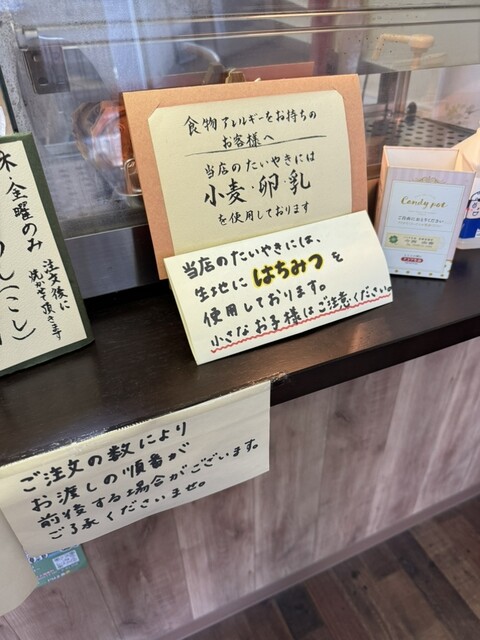 食物アレルギーをお持ちの
お客様へ
当店のたいやきには
小麦・卵・乳
を使用しております
当店のたいやきには、
生地にはちみつを
使用しております。
小さなお子様はご注意ください。
木・金曜のみ
注文後に
焼かせて頂きます
Candy pot
ご注文の数により
お渡しの順番が
前後する場合がございます。
ご了承くださいませ。